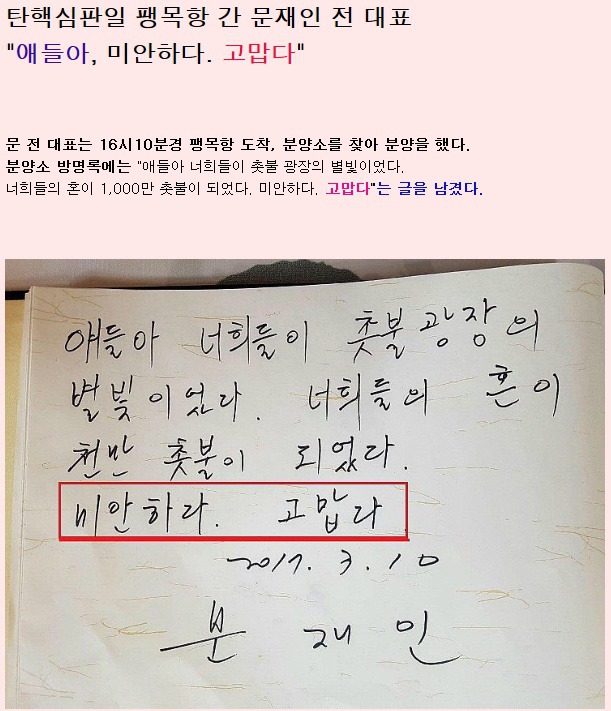 탄핵심판일 팽목항 간 문재인 전 대표
"애들아, 미안하다. 고맙다"
문 전 대표는 16시10분경 팽목항 도착, 분양소를 찾아 분양을 했다.
분양소 방명록에는 "애들아 너희들이 촛불 광장의 별빛이었다.
너희들의 혼이 1,000만 촛불이 되었다. 미안하다. 고맙다"는 글을 남겼다.
얘들아 너희들이 촛불광장의
별빛이었다. 너희들의 혼이
천만 촛불이 되었다.
미안하다. 고맙다
2017. 3. 10
문 재 인